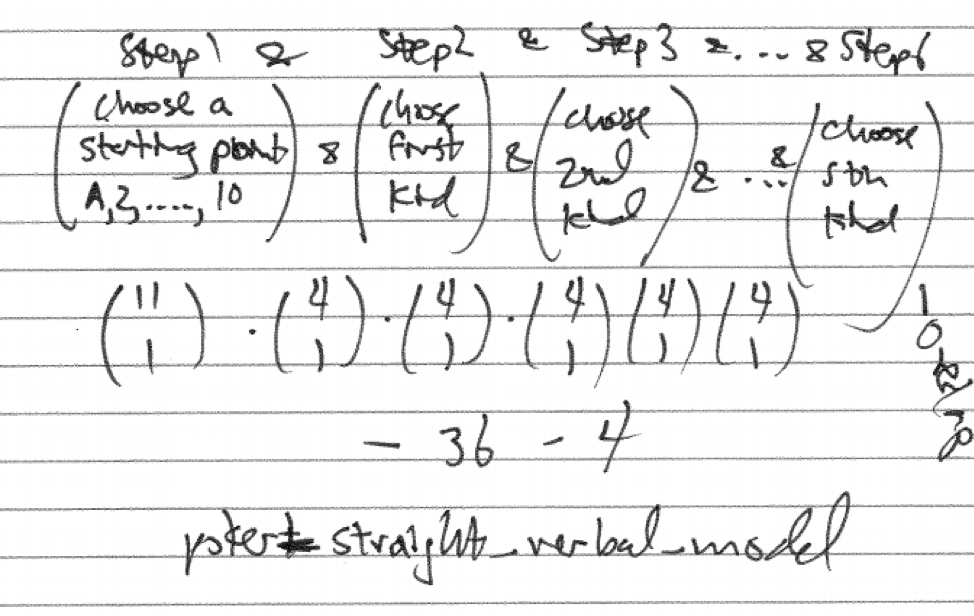 Step 1 & Step 2 & Step 3 & .... & Step 6
(choose a starting point A,2,....,10) & (choose first kind) & (choose 2nd kind) & ... & (choose 5th kind)
(11 1) . (4 1) . (4 1) . (4 1) (4 1) (4 1)
- 36 - 4
poker straight_verbal_model